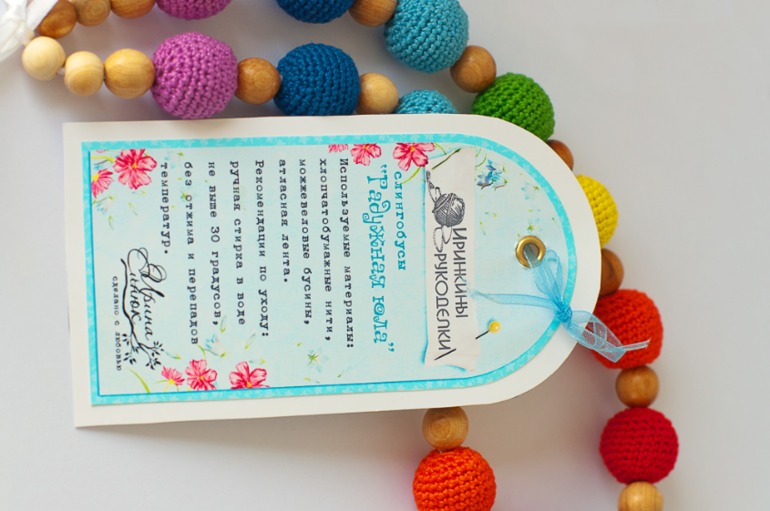 ИРИНКИНЫ
РУКОДЕЛКИ
слингобусы
"Радужная юла"
Используемые материалы:
хлопчатобумажные нити,
можжевеловые бусины,
атласная лента.
Рекомендации по уходу:
ручная стирка в воде
не выше 30 градусов,
без отжима и перепадов
температур.
Ирина
Синюк
сделано с любовью